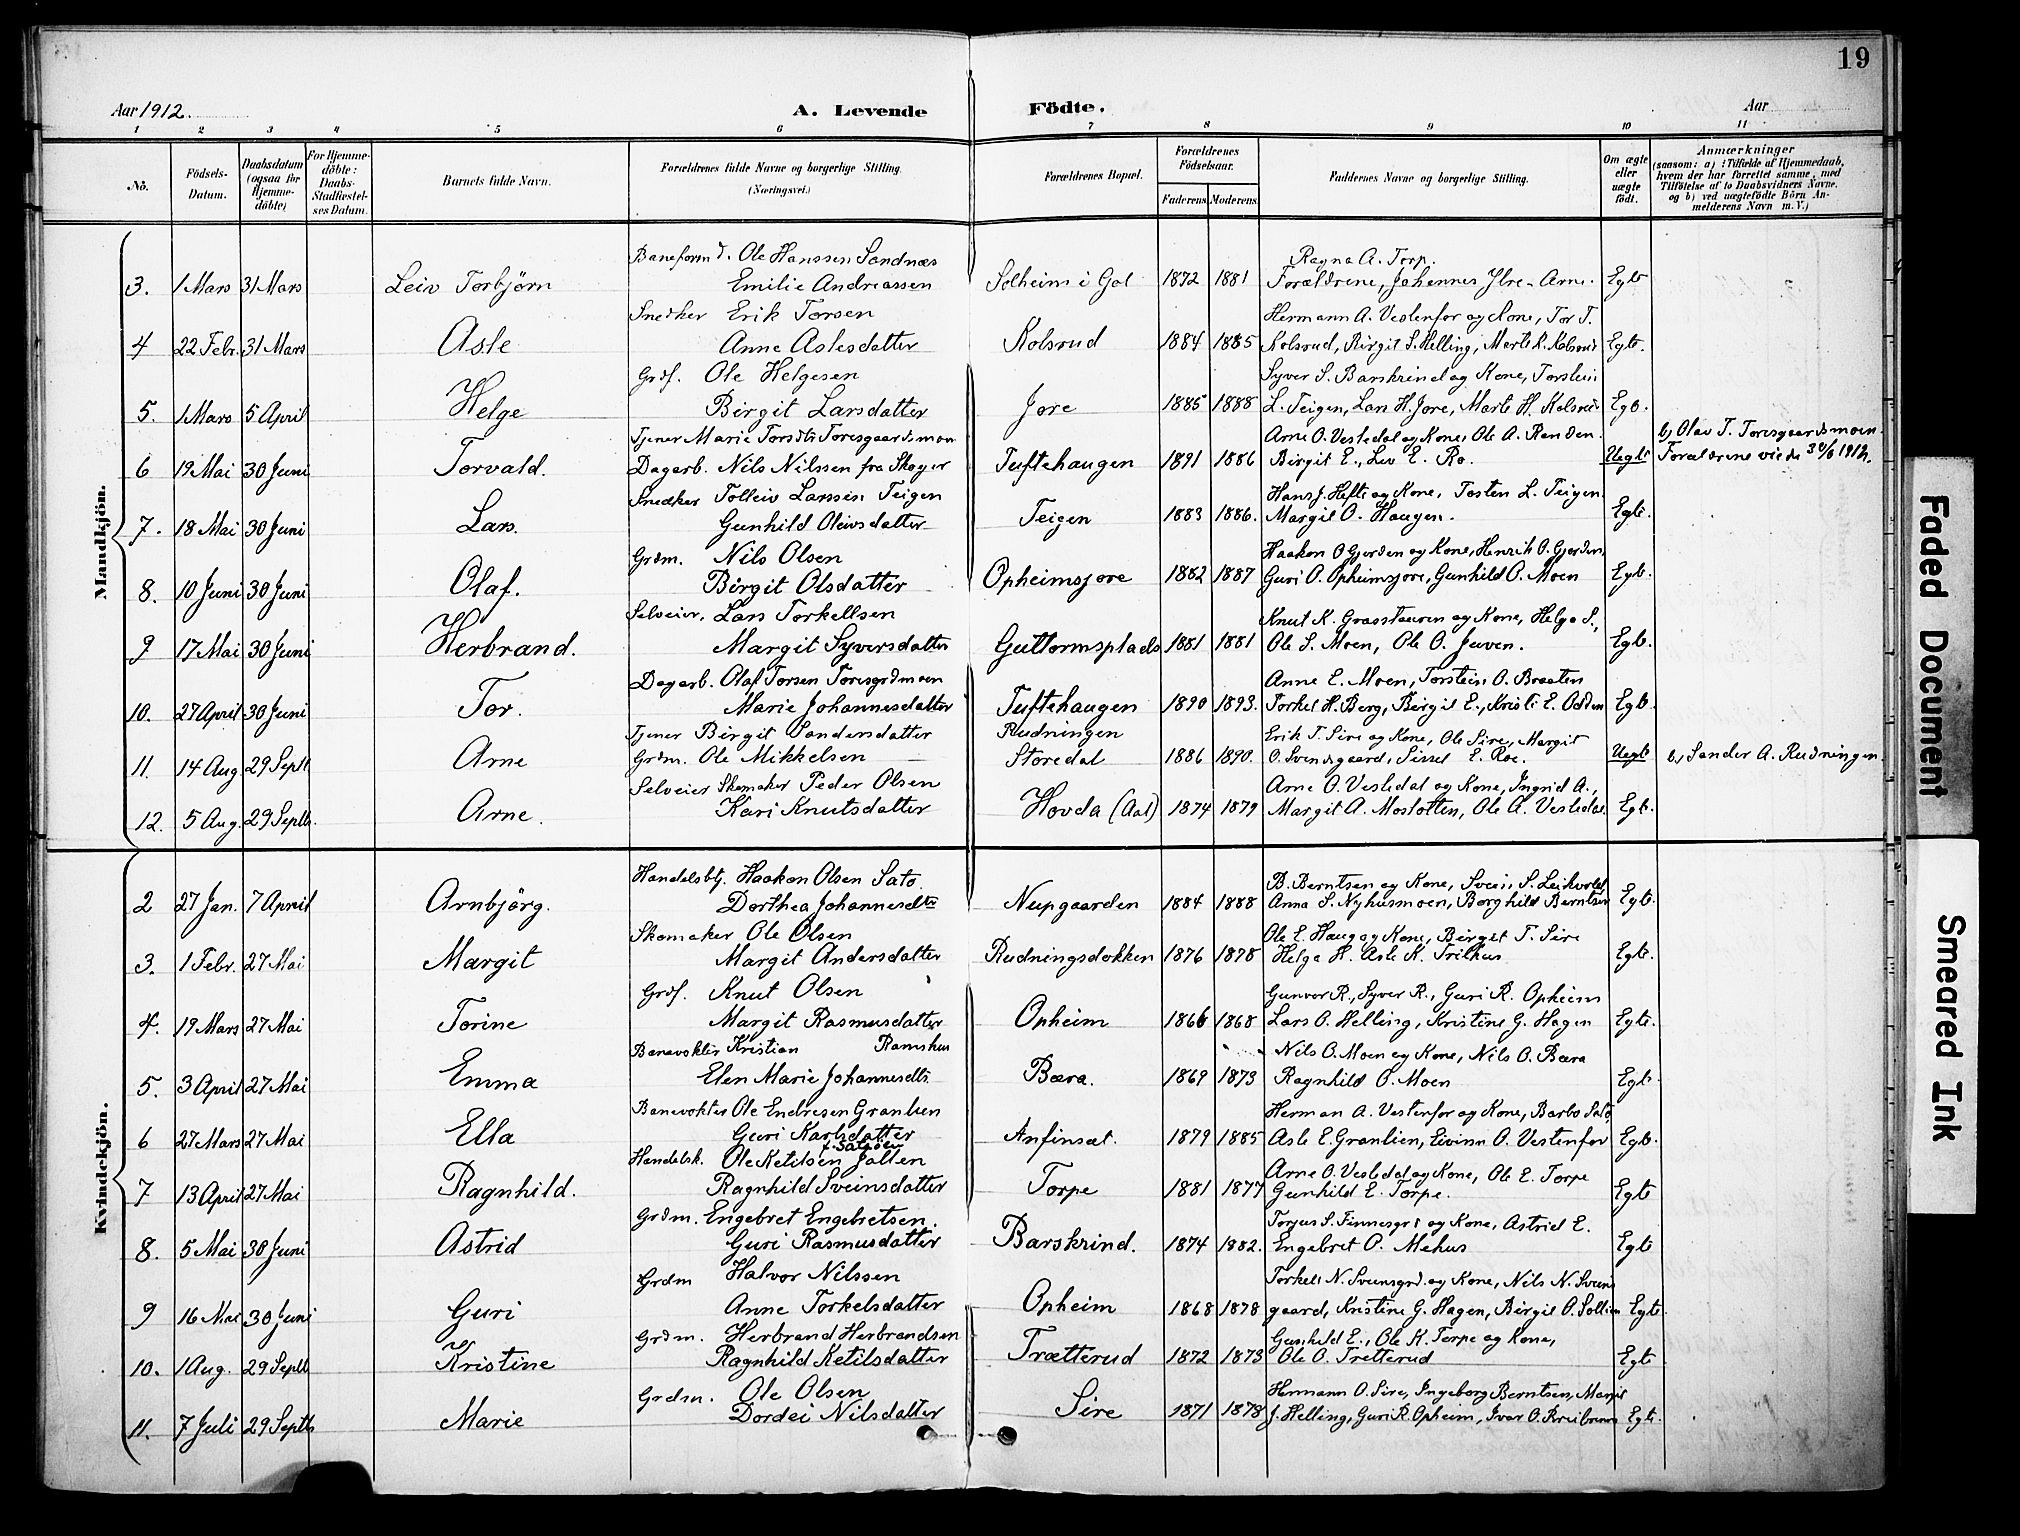 19
Aar 1912. A. Levende Födte. Aar
1 2 3 4 5 6 7 8 9 10 11
No. Födsels-Datum. Daabsdatum (ogsaa for Hjemme-döbte) For Hjemme-döbte: Daabs-Stadfæstel-ses Datum. Barnets fulde Navn. Forældrenes fulde Navne og borgerlige Stilling. (Næringsvei.) Forældrenes Bopæl. Forældrenes Födselsaar. Faderens Moderens Faddernes Navne og borgerlige Stilling. Om ægte eller uægte födt. Anmærkninger (saasom: a) i Tilfælde af Hjemmedaab, hvem der har forrettet samme, med Tilföielse af to Daabsvidners Navne, og b) ved uægtefödte Börn An-melderens Navn m. V.)
Mandkjön.
Baneformd. Ole Hanssen Sandnæs Ragna A. Torp.
3. 1 Mars 31 Mars Leiv Torbjörn Emilie Andreassen Solheim i Gol 1872 1881 Forældrene, Johannes Ylre-Arne. Egte
Snedker Erik Torsen Hermann A. Vestenfor og Kone, Tor T.
4 22 Febr. 31 Mars Asle Anne Aslesdatter Kolsrud 1884 1885 Kolsrud, Birgit S. Helling, Marte K. Kolsrud Egte.
Grdf. Ole Helgesen Syver S. Barskrind og Kone, Torstein
5. 1 Mars 5 April Helge Birgit Larsdatter Jore 1885 1888 L. Teigen, Lars H. Jore, Marte H. Kolsrud Egte.
Tjener Marie Torsdtr Toresgaardsmoen Arne O. Vestedal og Kone, Ole A. Randen b, Olav T. Toresgaardsmoen.
6 19 Mai 30 Juni Torvald. Dagarb. Nils Nilssen fra Skoger Tuftehaugen 1891 1886 Birgit E., Lev E. Ro. Uegte Forældrene viede 30/6 1912.
Snedker Tolleiv Larssen Teigen Hans J. Hefte og Kone, Tosten L. Teigen
7. 18 Mai 30 Juni Lars. Gunhild Oleivsdatter Teigen 1883 1886. Margit O. Haugen. Egte.
Grdm. Nils Olsen Haakon O Gjorden og Kone, Henrik O. Gjorden,
8. 10 Juni 30 Juni Olaf. Birgit Olsdatter Opheimsjore 1882 1887 Guri O. Opheimsjore, Gunhild O. Moen Egte.
Selveier. Lars Torkellsen Knut K. Grasstauren og Kone, Helge S.,
9 17 Mai 30 Juni Herbrand. Margit Syversdatter Guttormsplads 1881 1881 Ole S. Moen, Ole O. Juven. Egte.
Dagarb. Olaf Torsen Toresgrdmoen Anne E. Moen, Torstein O. Braaten
10. 27 April 30 Juni Tor. Marie Johannesdatter Tuftehaugen 1890 1893. Torkel H. Berg, Birgit E., Kristi E. Odden Egte.
Tjener Birgit Sandersdatter Rudningen Erik T. Sire og Kone, Ole Sire, Margit
11. 14 Aug 29 Septb Arne Grdm. Ole Mikkelsen Storedal 1886 1890. O. Svensgaard, Sissel E. Roe. Uegte b, Sander A. Rudningen
Selveier Skomaker Peder Olsen Arne O. Vestedal og Kone, Ingrid A.,
12. 5 Aug. 29 Septb. Arne. Kari Knutsdatter Hovda (Aal) 1874 1879 Margit A. Moslotten, Ole A. Vestedal Egte.
Kvindekjön.
Handelsbtj. Haakon Olsen Sato B. Berntsen og Kone, Svein S. Leikvold,
2 27 Jan. 7 April Arnbjörg. Dorthea Johannesdtr Nupgaarden 1884 1888 Anna S. Nyhusmoen, Borghild Berntsen Egte.
Skomaker Ole Olsen Ole E. Haug og Kone, Birgit T. Sire
3. 1 Febr. 27 Mai Margit Margit Andersdatter Rudningsdokken 1876 1878 Helga H. Asle K. Trilhus Egte.
Grdf. Knut Olsen Gunvor R., Syver R., Guri R. Opheim
4. 19 Mars 27 Mai Torine Margit Rasmusdatter Opheim 1866 1868 Lars O. Helling, Kristine G. Hagen Egte.
Banevokter Kristian Ramshus Nils O. Moen og Kone, Nils O. Bæra
5. 3 April 27 Mai Emma Elen Marie Johannesdtr Bæra. 1869 1873 Ragnhild O. Moen Egte.
Banevokter Ole Endresen Granlien Herman A. Vestenfor og Kone, Barbo Sato,
6 27 Mars 27 Mai Ella Guri Karlsdatter Anfinset. 1879 1885 Asle E. Granlien, Eivinn O. Vestenfor Egte.
Handelsk. Ole Ketilsen Jallen Arne O. Vestedal og Kone, Ole E. Torpe
7 13 April 27 Mai Ragnhild. Ragnhild Sveinsdatter Torpe 1881 1877 Gunhild E. Torpe. Egte
Grdm. Engebret Engebretsen. Torjus S. Finnesgrd og Kone, Astrid E.
8. 5 Mai 30 Juni Astrid Guri Rasmusdatter Barskrind. 1874 1882. Engebret O. Mehus Egte
Grdm Halvor Nilssen Torkel N. Svensgrd. og Kone, Nils N. Svens
9 16 Mai 30 Juni Guri Anne Torkelsdatter Opheim 1868 1878 gaard, Kristine G. Hagen, Birgit O. Sollien Egte.
Grdm. Herbrand Herbrandsen Gunhild E., Ole K. Torpe og Kone,
10. 1 Aug. 29 Septb Kristine Ragnhild Ketilsdatter Trætterud 1872 1873 Ole O. Tretterud Egte
Grdm. Ole Olsen Hermann O. Sire, Ingeborg Berntsen, Margit
11. 7 Juli 29 Septb Marie Dordei Nilsdatter Sire 1871 1878 J. Helling, Guri R. Opheim, Ivar O. Egte.
Faded Document
Smeared Ink